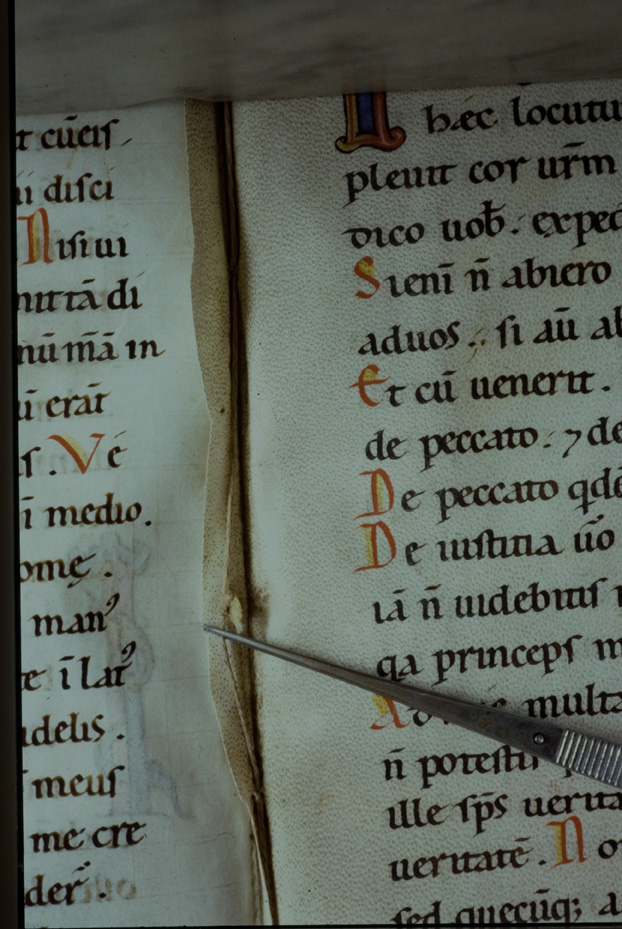 t cūeıs.
ıı disci
Nisi ui
mittā di
nū mā in
ū erāt
s. Ve
ī medio.
omę.
man⁹
te ī lat⁹
delis.
meus
me cre
der.
hæc locutu
pleuit cor ur̄m
dico uob̄. exped
Si eni n̄ abiero
ad uos. si aū ab
Et cū uenerit.
de peccato. ⁊ de
De peccato qdē
De iustitia ūo
iā n̄ uidebitis
qa princeps m
multa
n̄ potestis
ille sp̄s uerita
ueritatē. No
sed quecūq; a